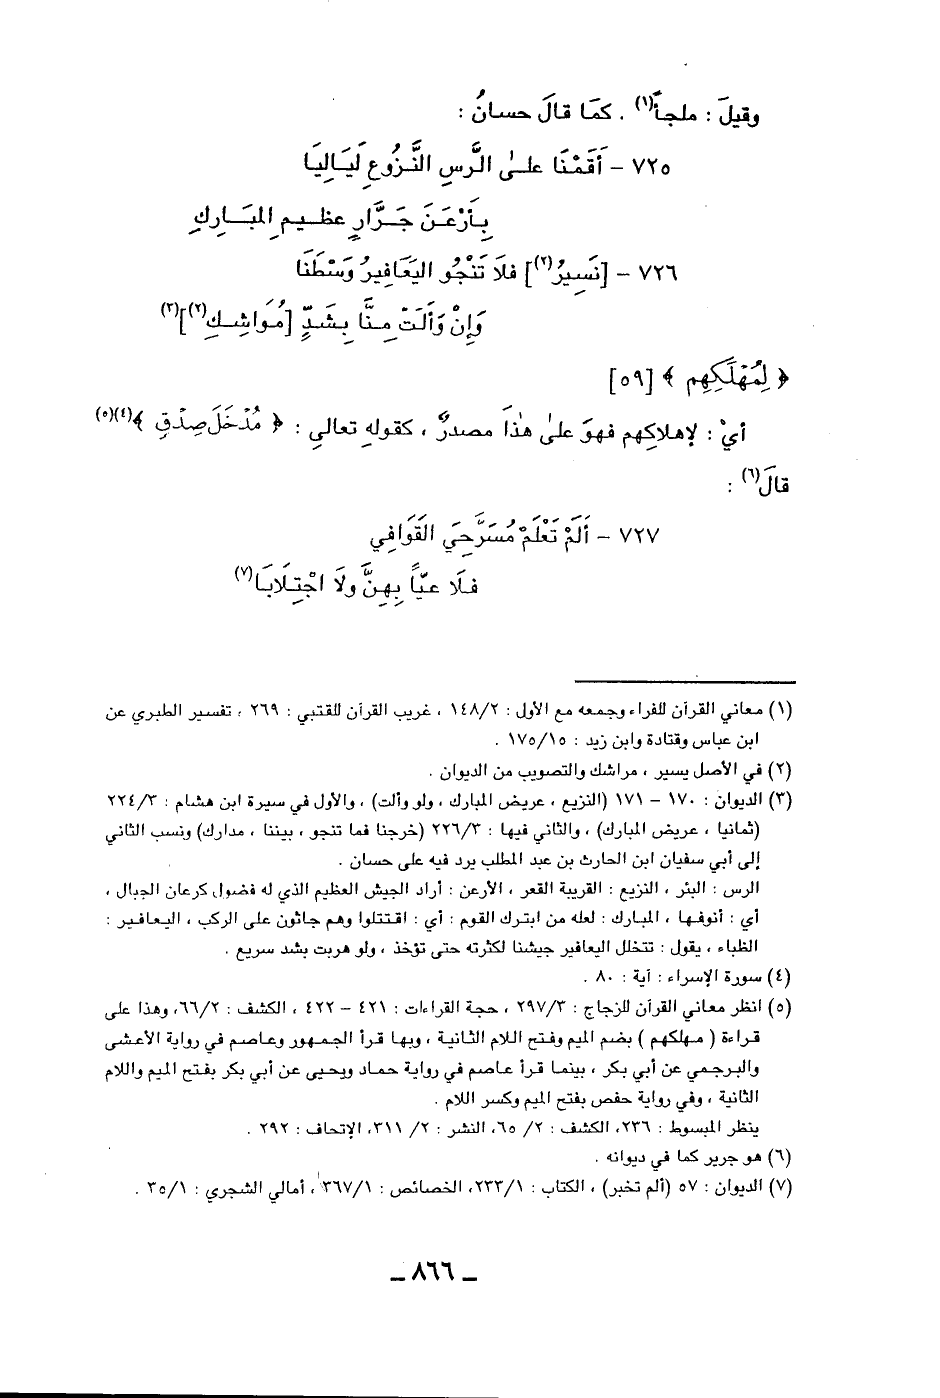 وقيلَ : ملجأً(١) . كمَا قالَ حسانُ :
٧٢٥ – أَقَمْنَا علـىٰ الرَّسِ النَّزُوعِ لَيَـالِيَـا
بِـأَرْعَـنَ جَـرَّارٍ عظـيـمِ المبَـارِكِ
٧٢٦ – [نَسِيرُ(٢)] فلاَ تَنْجُو اليَعَافِيرُ وَسْطَنَا
وَإِنْ وَأَلَتْ مِـنَّا بِـشَـدٍّ [مُـوَاشِـكِ(٢)](٣)
﴿ لِمُهْلَكِهِم ﴾ [٥٩]
أيْ : لإهلاكِهم فهوَ علىٰ هٰذَا مصدرٌ ، كقولهِ تعالى : ﴿ مُدْخَلَ صِدْقٍ ﴾(٤)(٥)
قالَ(٦) :
٧٢٧ – أَلَمْ تَعْلَمْ مُسَرَّحِيَ القَوَافِي
فـلَا عيّاً بِهِنَّ ولَا اجْتِـلَابَـا(٧)
(١) معاني القرآن للفراء وجمعه مع الأول : ١٤٨/٢ ، غريب القرآن للقتبي : ٢٦٩ ، تفسير الطبري عن
ابن عباس وقتادة وابن زيد : ١٧٥/١٥ .
(٢) في الأصل يسير ، مراشك والتصويب من الديوان .
(٣) الديوان : ١٧٠ – ١٧١ (النزيع ، عريض المبارك ، ولو وألت) ، والأول في سيرة ابن هشام : ٢٢٤/٣
(ثمانيا ، عريض المبارك) ، والثاني فيها : ٢٢٦/٣ (خرجنا فما تنجو ، بيننا ، مدارك) ونسب الثاني
إلى أبي سفيان ابن الحارث بن عبد المطلب يرد فيه على حسان .
الرس : البئر ، النزيع : القريبة القعر ، الأرعن : أراد الجيش العظيم الذي له فضول كرعان الجبال ،
أي : أنوفها ، المبارك : لعله من ابترك القوم : أي : اقتتلوا وهم جاثون على الركب ، اليعافير :
الظباء ، يقول : تتخلل اليعافير جيشنا لكثرته حتى تؤخذ ، ولو هربت بشد سريع .
(٤) سورة الإسراء : آية : ٨٠ .
(٥) انظر معاني القرآن للزجاج : ٢٩٧/٣ ، حجة القراءات : ٤٢١ – ٤٢٢ ، الكشف : ٦٦/٢، وهذا على
قراءة ( مهلكهم ) بضم الميم وفتح اللام الثانية ، وبها قرأ الجمهور وعاصم في رواية الأعشى
والبرجمي عن أبي بكر ، بينما قرأ عاصم في رواية حماد ويحيى عن أبي بكر بفتح الميم واللام
الثانية ، وفي رواية حفص بفتح الميم وكسر اللام .
ينظر المبسوط : ٢٣٦، الكشف : ٢/ ٦٥، النشر : ٢/ ٣١١، الإتحاف : ٢٩٢ .
(٦) هو جرير كما في ديوانه .
(٧) الديوان : ٥٧ (ألم تخبر) ، الكتاب : ٢٣٣/١، الخصائص : ٣٦٧/١ ، أمالي الشجري : ٣٥/١ .
– ٨٦٦ –